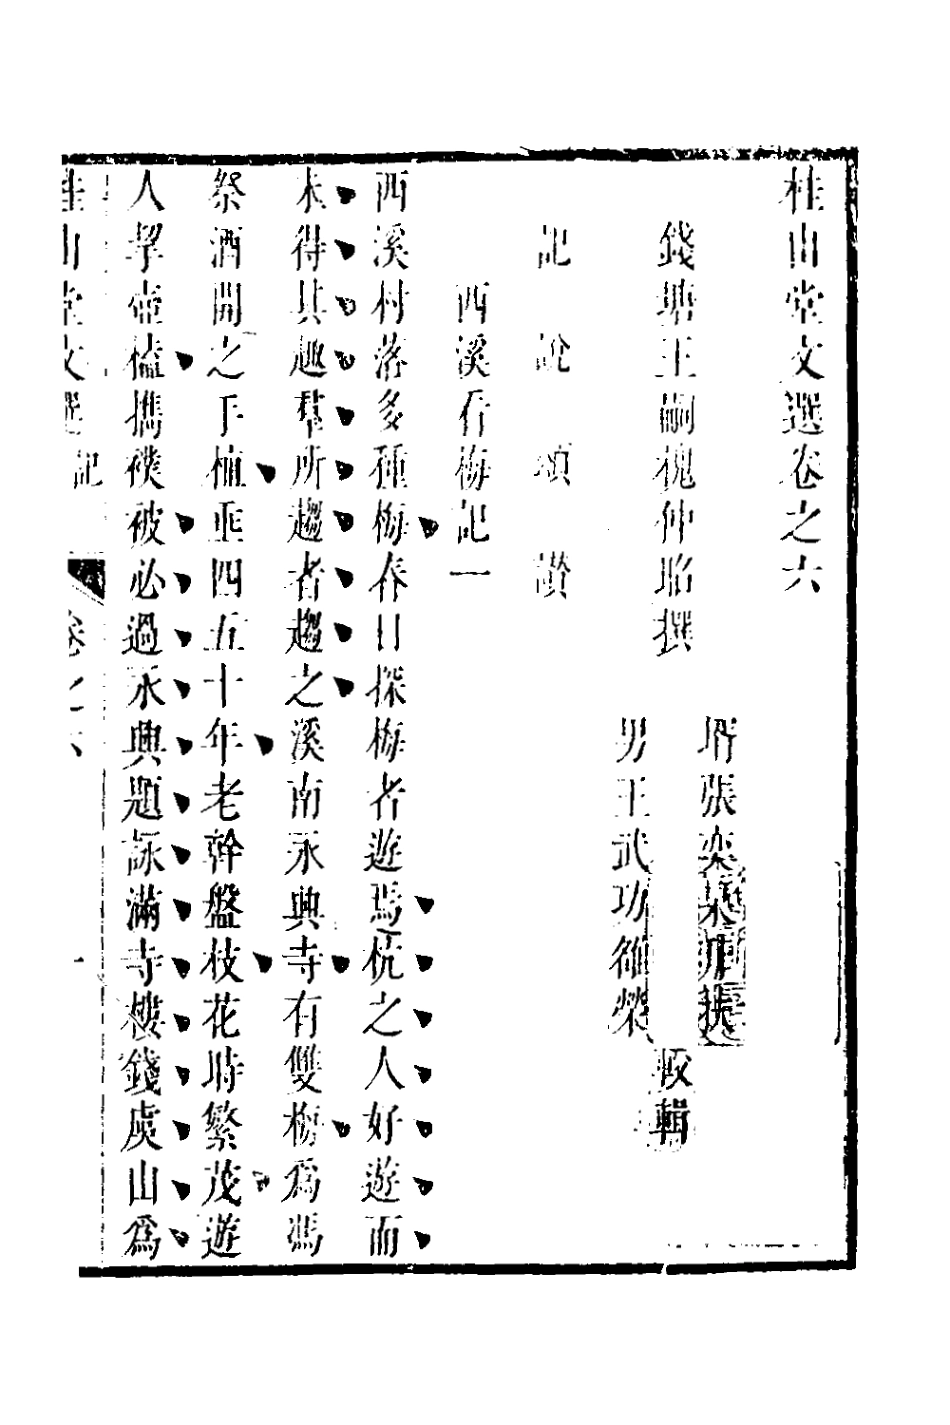 桂山堂文選卷之六
錢塘王嗣槐仲昭撰
壻張奕
男王武功維榮
輯
記 說 頌 讚
西溪看梅記一
西溪村落多種梅春日探梅者遊焉杭之人好遊而
未得其趣羣所趨者趨之溪南永興寺有雙梅爲馮
祭酒開之手植垂四五十年老幹盤枝花時繁茂遊
人挈壺榼攜襆被必過永興題詠滿寺樓錢虞山爲
桂山堂文選 記 卷之六 一